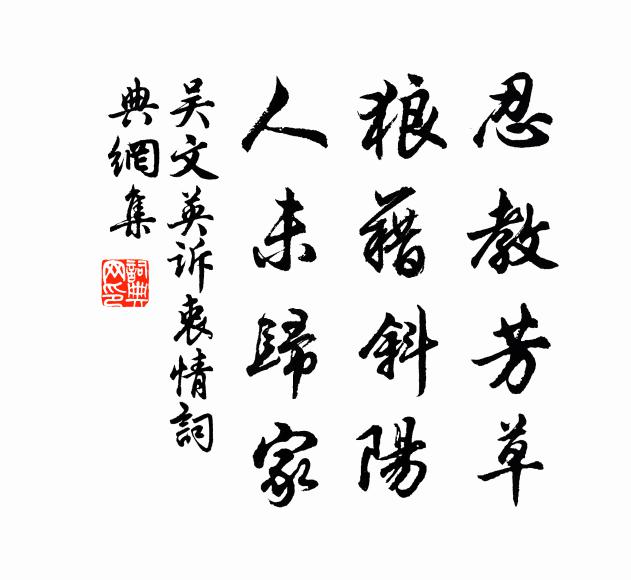 忍教芳草
狼藉斜陽
人未歸家
吳文英訴衷情詞
典網集
詞典網印